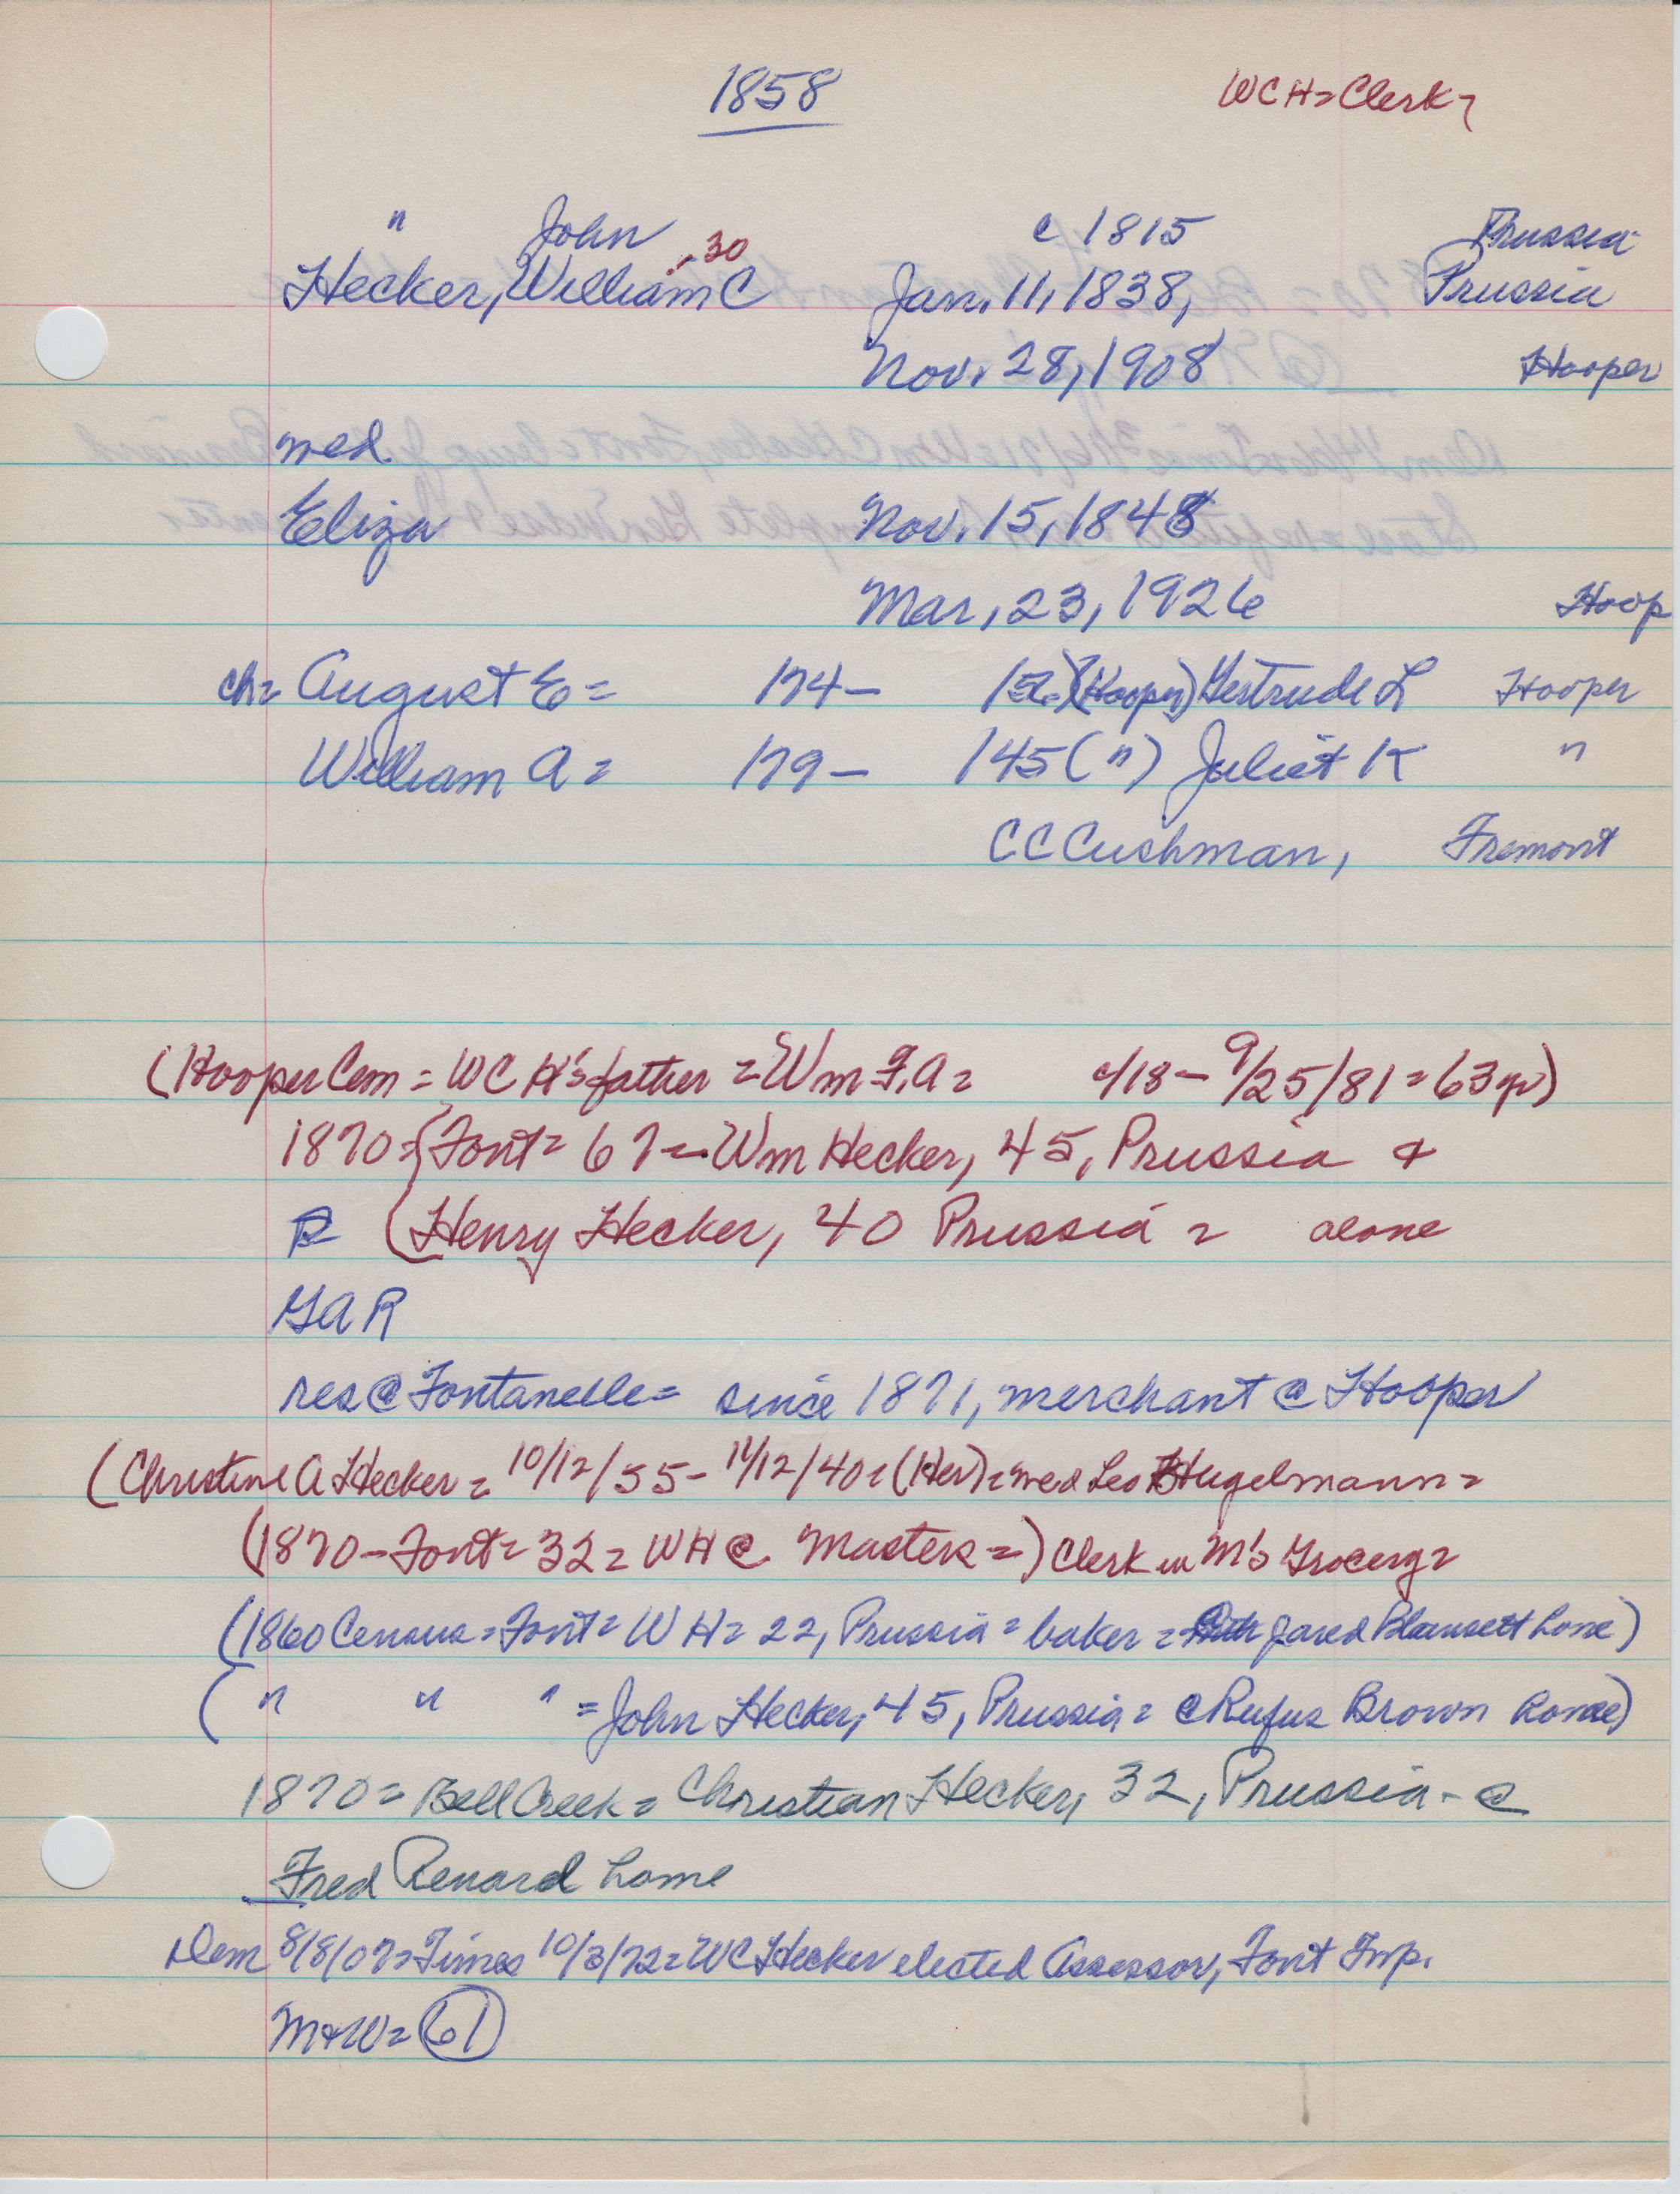 1858
WCH = Clerk =
" John c 1815 Prussia
, 30
Hecker, William C Jan. 11, 1838, Prussia
Nov. 28, 1908 Hooper
med
Eliza Nov. 15, 1848
Mar, 23, 1926 Hoop
ch = August E = '74 - (Hooper) Gertrude L Hooper
William A = '79 - '45 (") Juliet K "
CC Cushman, Fremont
(Hooper Cem = WC H's father = Wm F. A = c/18 - 9/25/81 = 63 yr)
1870 = (Font = 67 = Wm Hecker, 45, Prussia &
R (Henry Hecker, 40 Prussia = alone
GAR
res @ Fontanelle = since 1871, merchant @ Hooper
(Christine A Hecker = 10/12/55 - 11/12/40 = (Her) = med Leo Hugelmann =
(1870 - Font = 32 = WH @ Masters =) Clerk in M's Grocery =
(1860 Census = Font = WH = 22, Prussia = baker = Jared Blansett home)
( " " " = John Hecker, 45, Prussia = @ Rufus Brown home)
1870 = Bell Creek = Christian Hecker, 32, Prussia - @
Fred Renard home
Dem 8/8/07 = Times 10/3/72 = WC Hecker elected Assessor, Font Twp.
M&W = 61